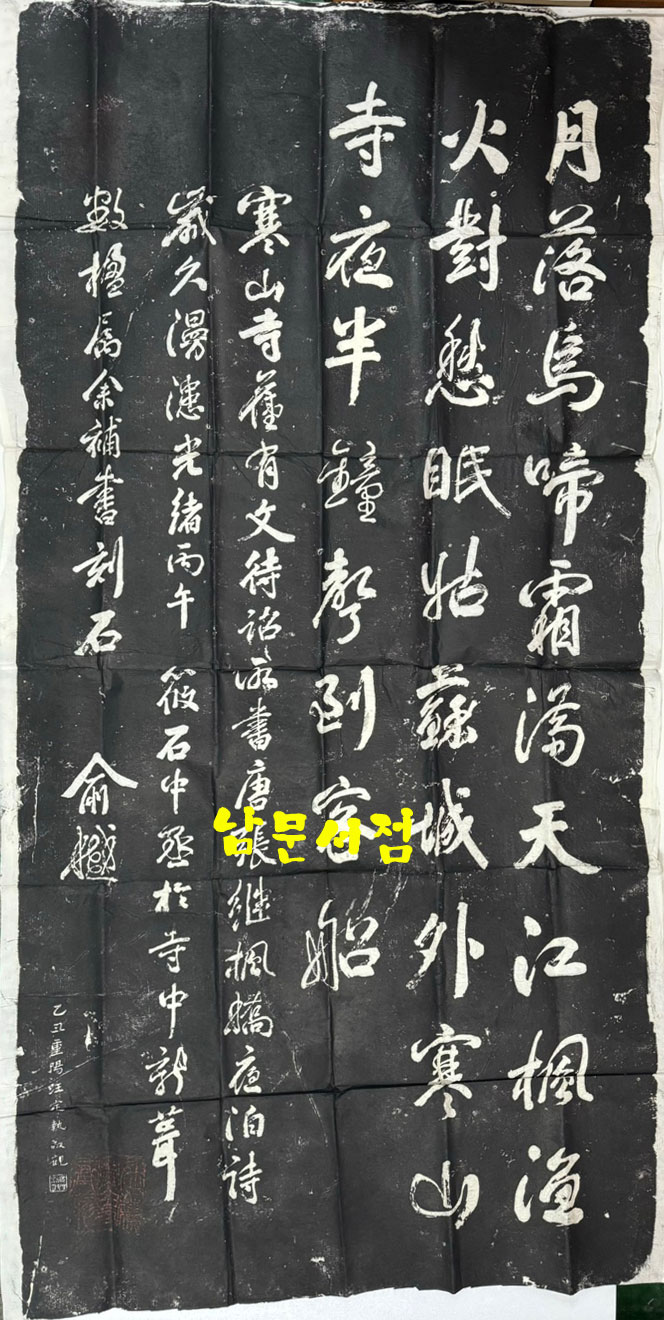 月落烏啼霜滿天江楓漁
火對愁眠姑蘇城外寒山
寺夜半鐘聲到客船
寒山寺舊有文待詔所書唐張継楓橋夜泊詩
歲久漫漶光緒丙午 筱石中丞於寺中新葺
數楹屬余補書刻石 俞樾
乙丑重陽汪 執敬觀
남문서점